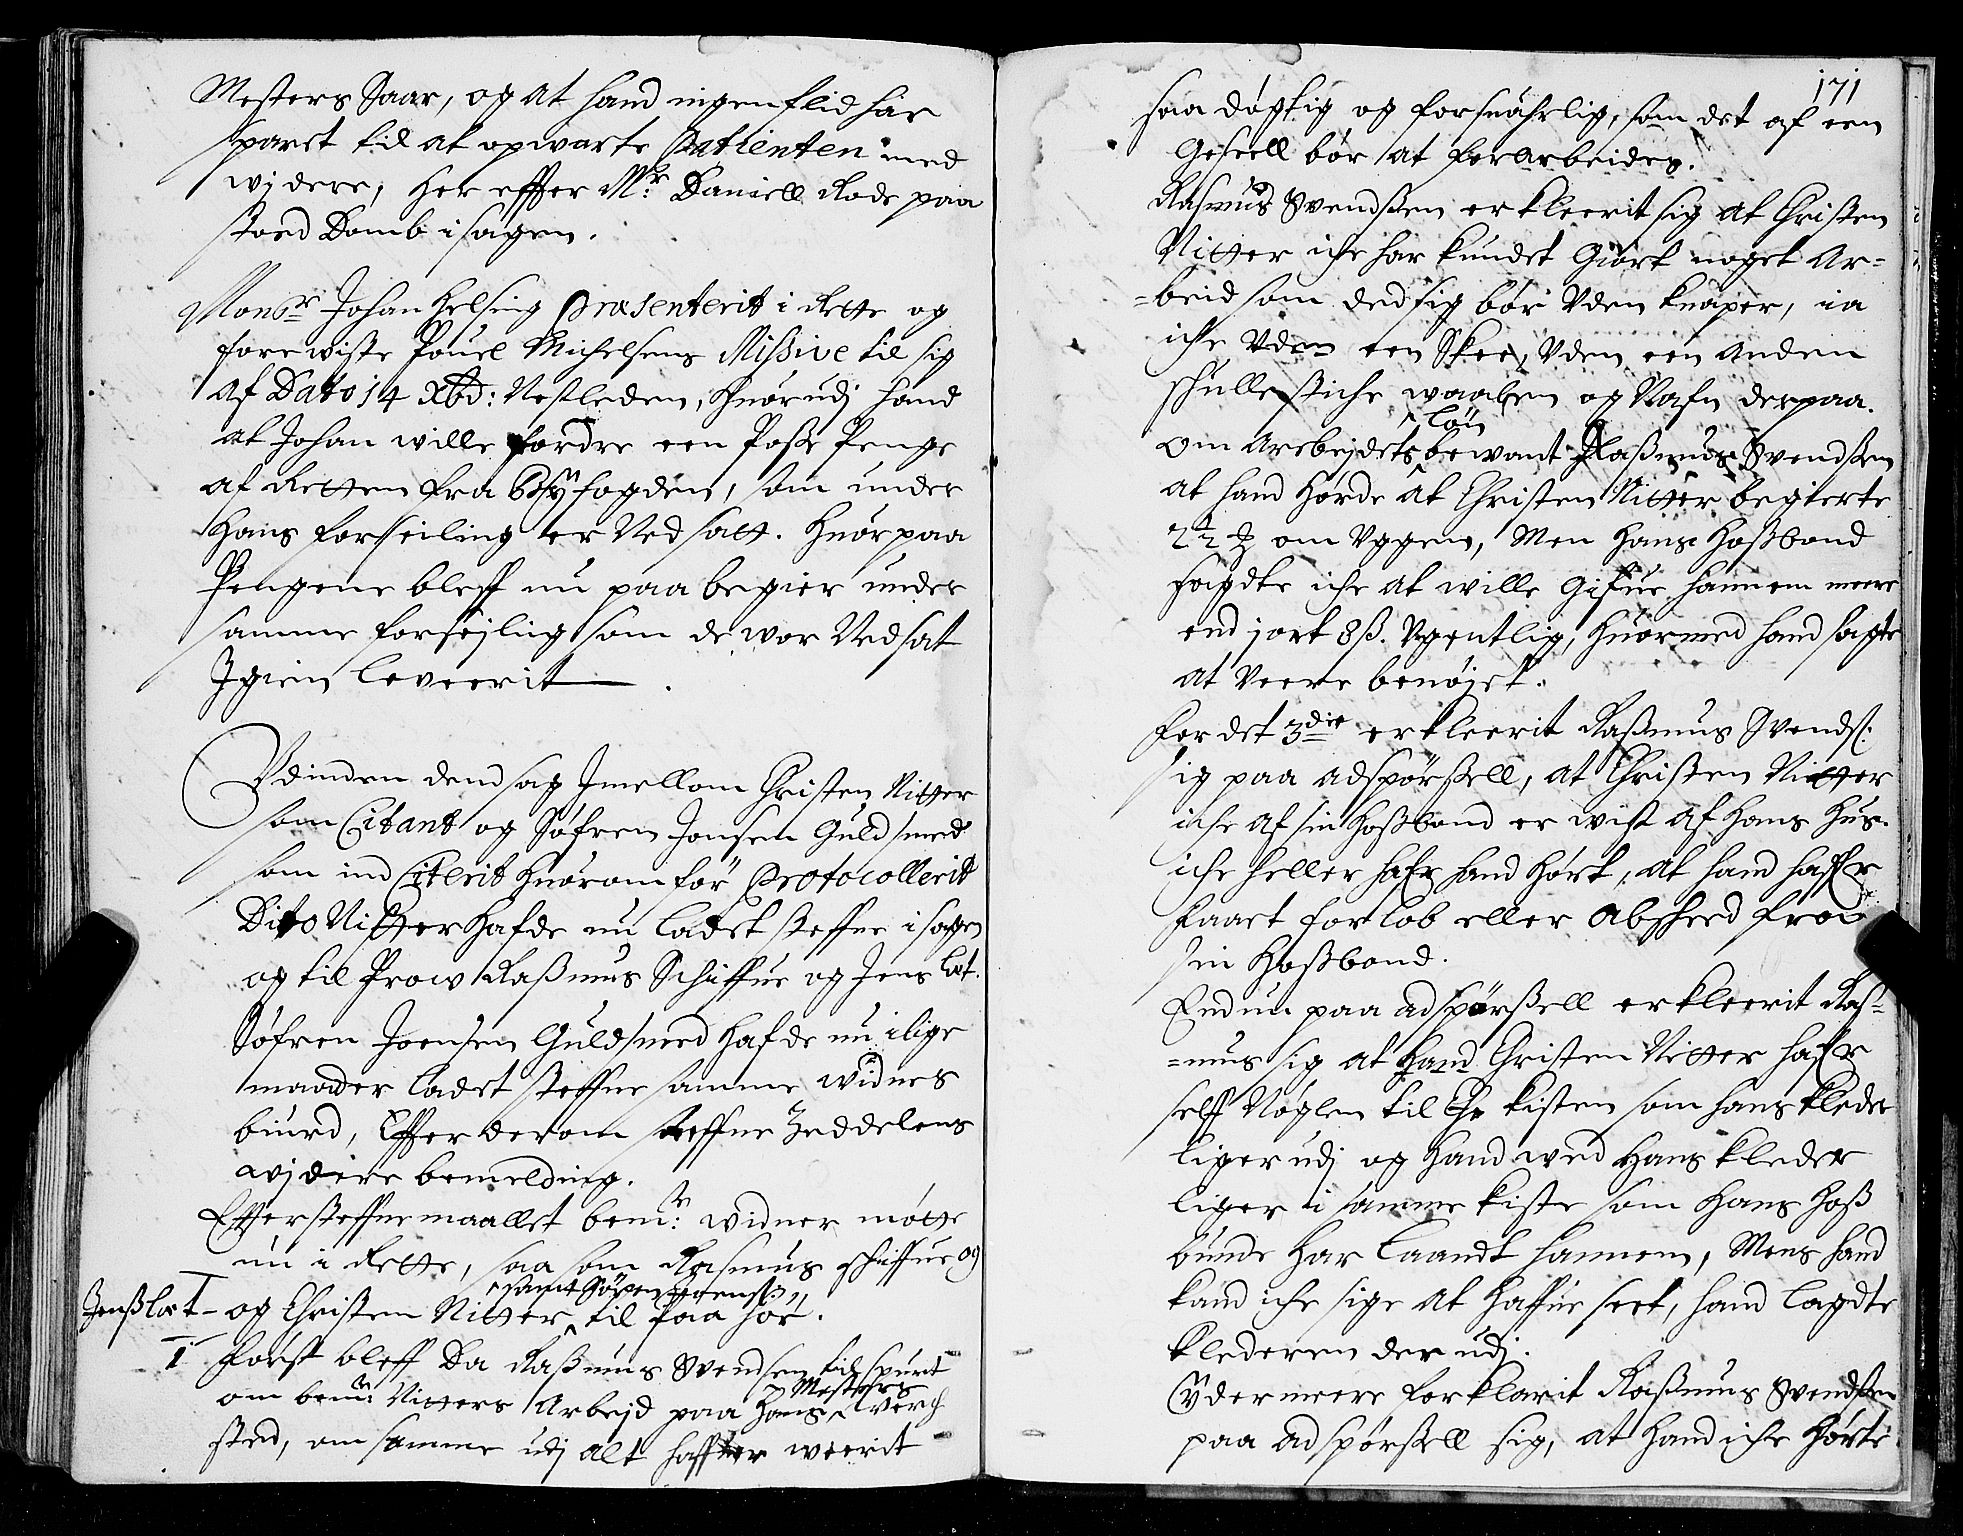 Mesters Saar, og at hand ingen flid har
sparet til at opwarte Patienten med
wjdere, Her effter Mr: Daniell Rode paa
stoed Domb i sagen.
Monsr Johan Helsing Præsenterit i Rette og
forewiste Pouel Michelsens Missive til sig
af Dato 14 Xbd: Nestleden, Huorudj hand
at Johan wille fordre een Posse Penge
af Retten fra Byfogden, som under
Hans forseiling er Nedsatt. Huorpaa
Pengene bleff nu paa begier under
samme forsejling som de wor Nedsat
Igien leveerit
Udinden dend sag Imellom Christen Nitter
som Citant og Søfren Jonsen Guldsmed
som ind Citerit Huorom før Protocollerit
Dito Nitter Hafde nu ladet steffne i sagen
og til Prow Rassmus Schiffue og Jens Let.
Søfren Joensen Guldsmed Hafde nu i lige
maader ladet steffne samme widnes
biurd, Effter derom steffne Zeddelens
wjdere bemelding.
Effter steffnemaallet bemte: widner møtte
nu i Rette, saa som Rasmus schiffue og
samt Søren Joenss:
Jenss let - og Christen Nitter til paa hør.
1 først bleff Da Rassmus Svendsen tilspurt
om bemte: Nitters Arbejd paa Hans Mesters werch
sted, om samme udj alt haffver weerit
171
saa døgtig og forsuahrlig, som det af een
Geseell bør at forarbeides.
Rasmus Svendssen erkleerit sig at Christen
Nitter iche har kundet Giort noget Ar=
=beid som ded sig bør Uden knaper, ia
iche Uden een Skee, Uden een anden
schulle stiche waaben og Nafn derpaa.
løn
om Arbejdets bewant Rassmus Svendssen
at hand Hørde at Christen Nitter begierte
2½ om Uggen, Men Hans Hossbond
sagdte iche at wille Gifue hannem meere
end j ort 8 ss. Ugentlig, Huormed hand sagte
at Veere benøjet.
for det 3die erkleerit Rassmus Svends:
sig paa adspørssell, at Christen Nitter
iche af sin Hossbond er wist af Hans Hus.
iche heller hafr hand Hørt, at hand haffr
faaet forlob eller Absheed fra
sin Hossbond.
Endnu paa adspørssell erkleerit Ras=
=mus sig at Hand Christen Nitter hafr
selff Nøglen til kisten som hans kleder
liger udj og Hand wed Hans kleder
liger i samme kiste som Hans Hoss
bunde Har laandt hannem, Mens hand
kand iche sige at haffue seet, hand lagdte
klederen der udj.
Ydermeere forklarit Rassmus Svendssen
paa adspørssell sig, at Hand iche Hørte